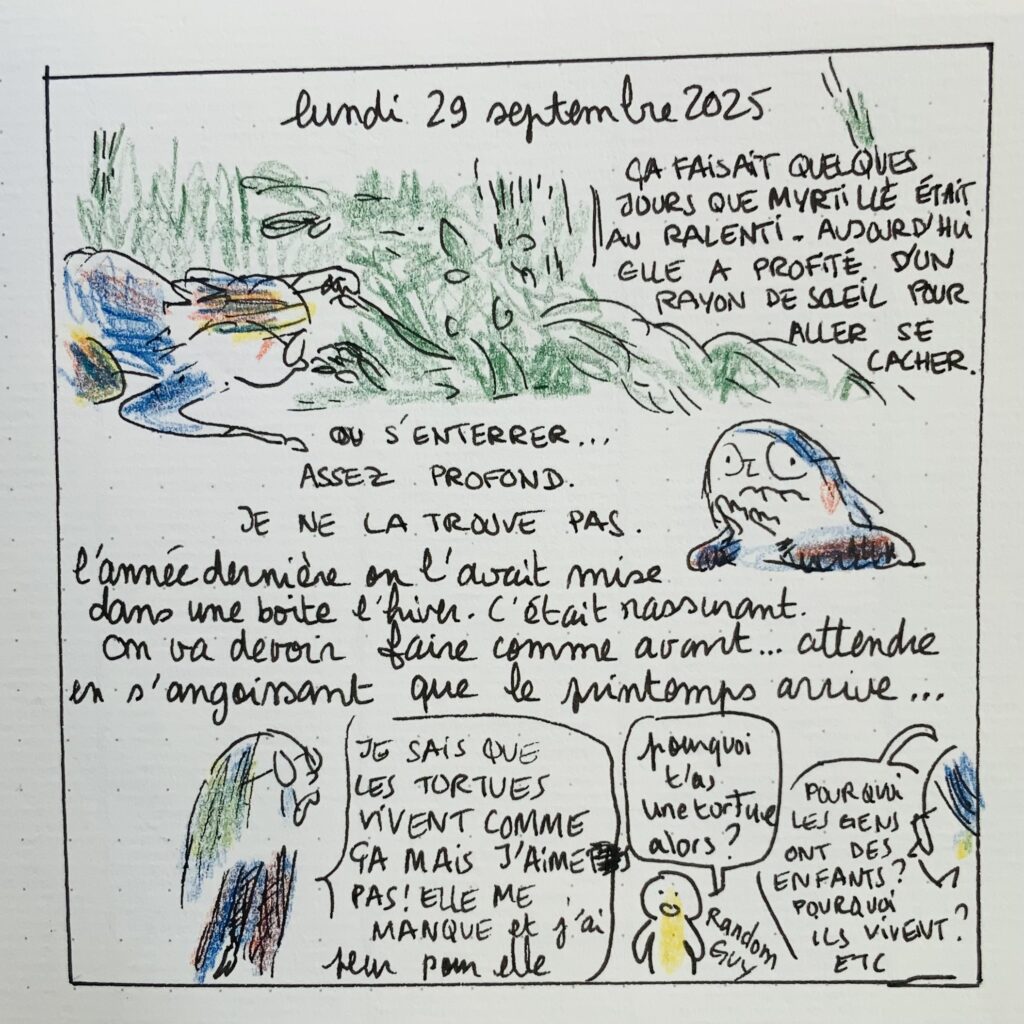 lundi 29 septembre 2025
ÇA FAISAIT QUELQUES
JOURS QUE MYRTILLE ÉTAIT
AU RALENTI. AUJOURD'HUI
ELLE A PROFITÉ D'UN
RAYON DE SOLEIL POUR
ALLER SE
CACHER.
OU S'ENTERRER...
ASSEZ PROFOND.
JE NE LA TROUVE PAS.
l'année dernière on l'avait mise
dans une boite l'hiver. C'était rassurant.
On va devoir faire comme avant... attendre
en s'angoissant que le printemps arrive...
JE SAIS QUE
LES TORTUES
VIVENT COMME
ÇA MAIS J'AIME
PAS! ELLE ME
MANQUE et j'ai
peur pour elle
pourquoi
t'as
une tortue
alors?
Random
Guy
POURQUOI
LES GENS
ONT DES
ENFANTS?
POURQUOI
ILS VIVENT?
ETC